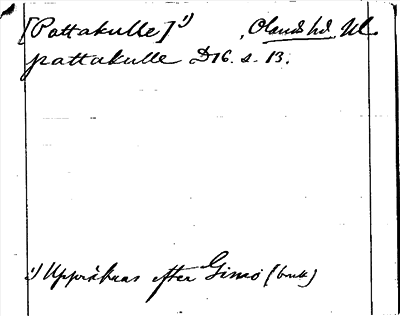 [Pattakulle] ¹) Olands hd, Ul.
pattakulle D16. s. 13.
¹) Uppräknas efter Gimo (bruk)